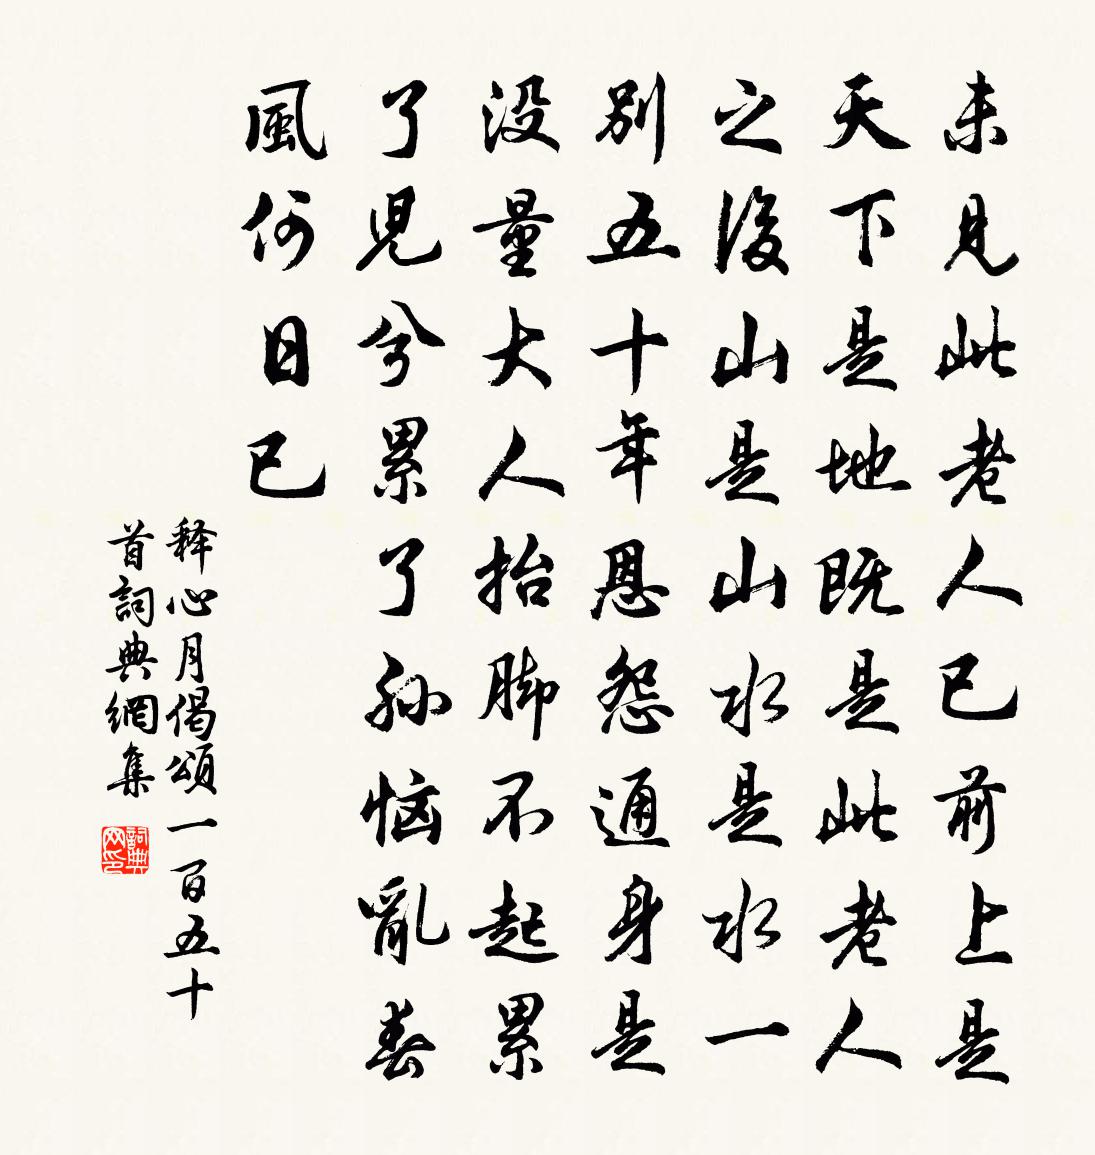 未見此老人已前上是
天下是地既是此老人
之後山是山水是水一
別五十年恩怨通身是
没量大人抬脚不起累
了兒兮累了孫惱亂春
風何日已
释心月偈頌一百五十
首詞典網集
詞典网印